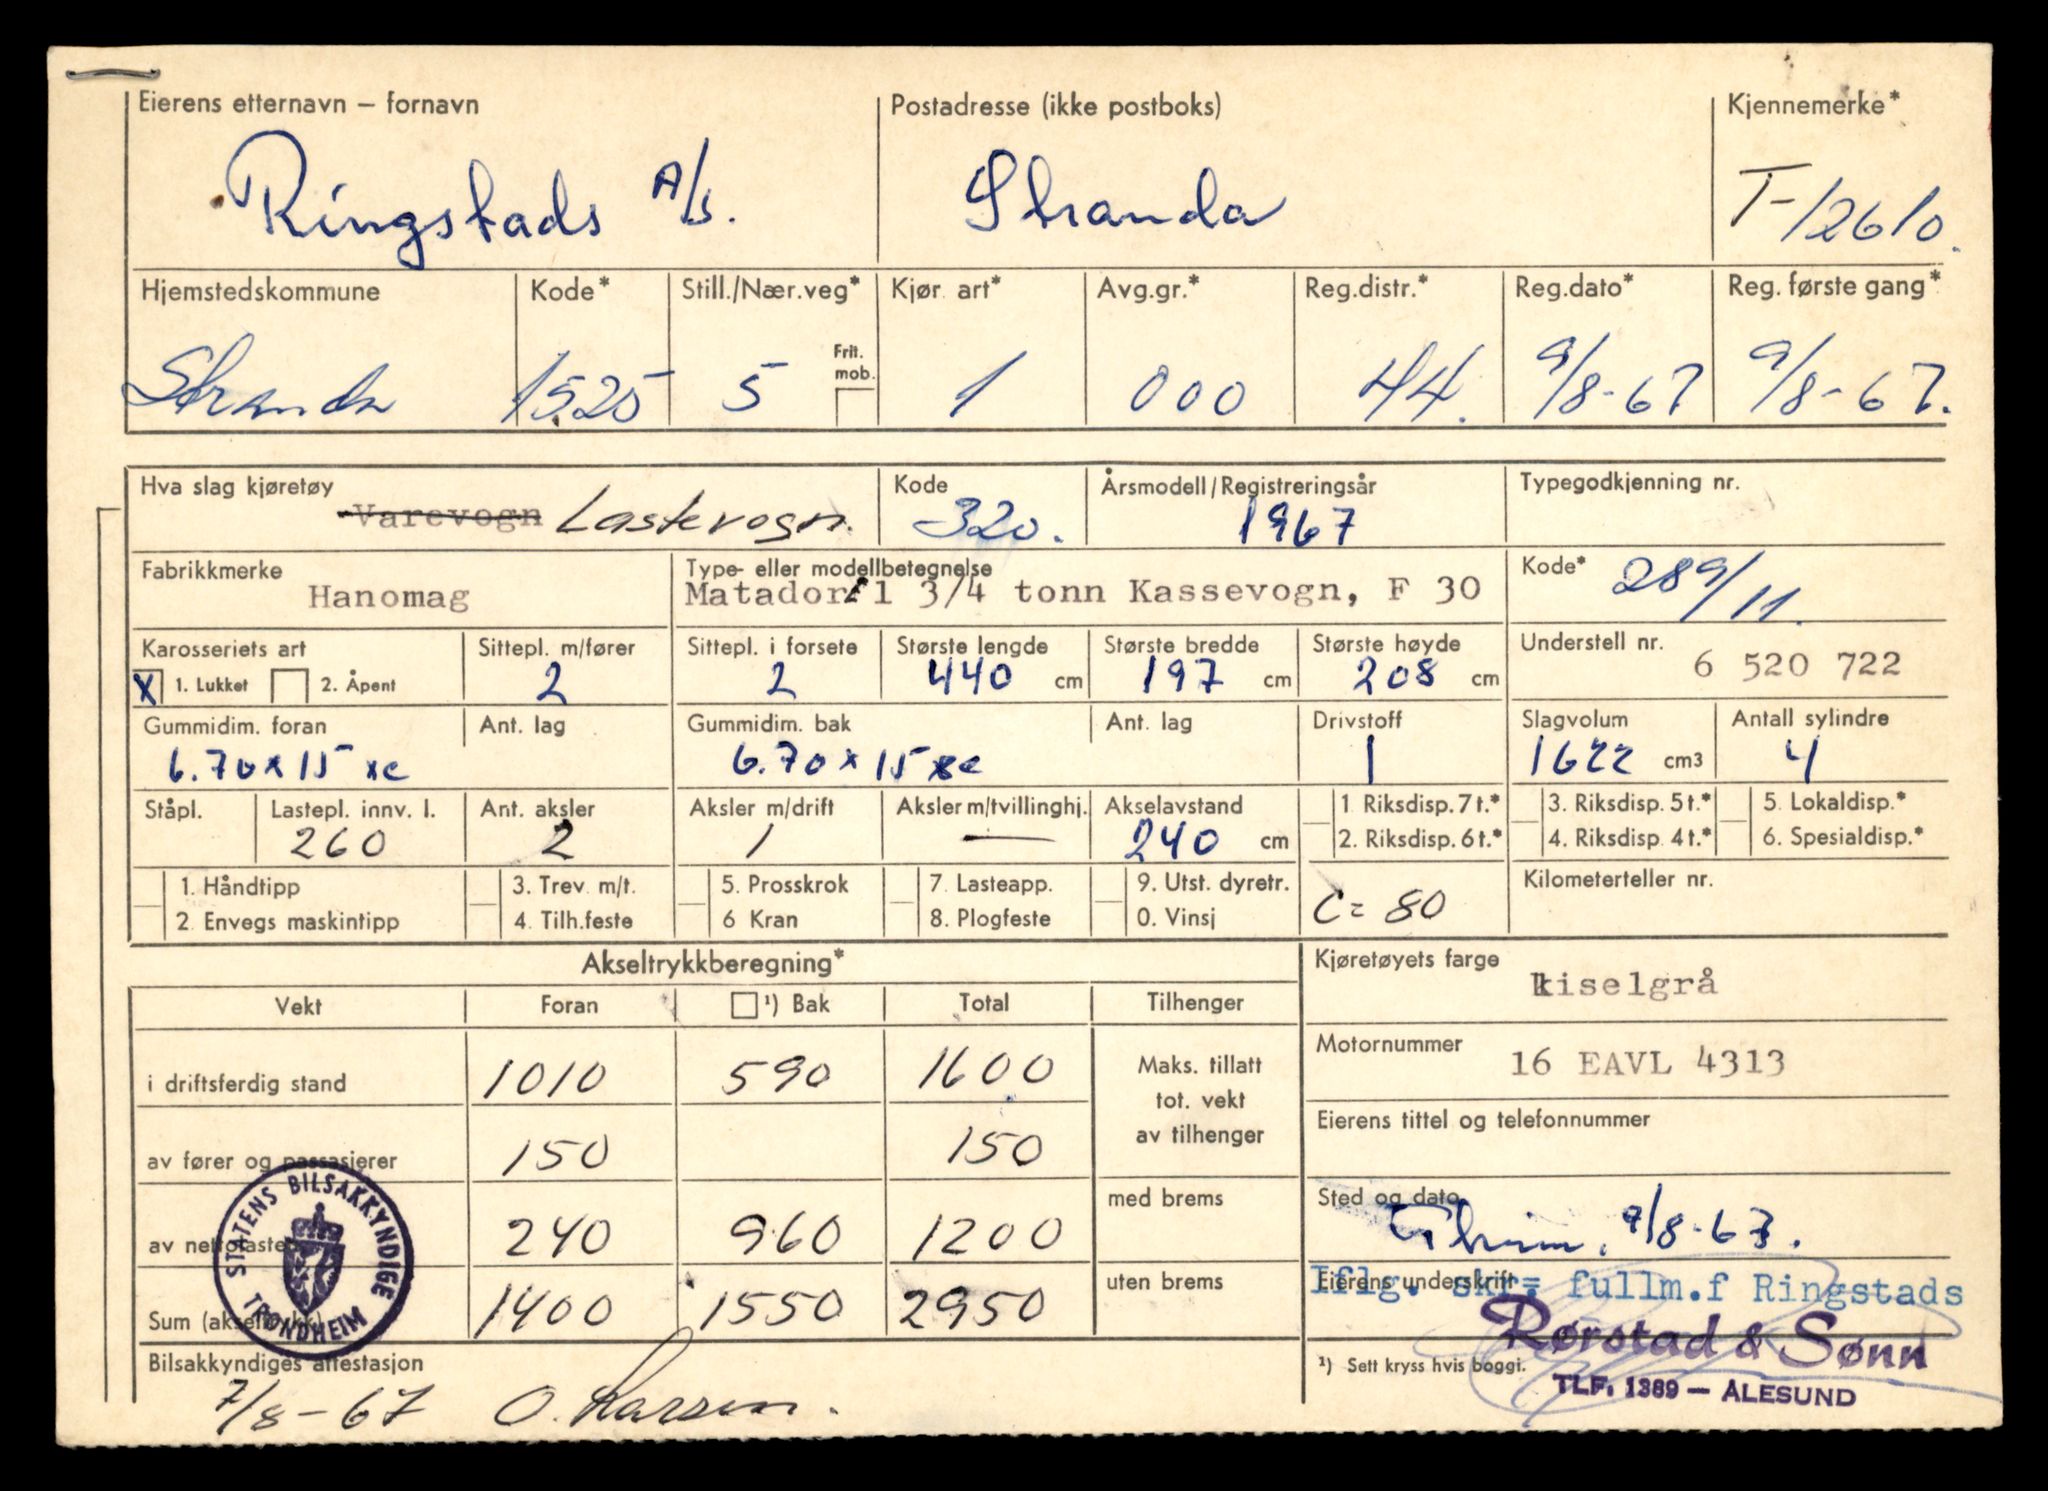 Eierens etternavn – fornavn Postadresse (ikke postboks) Kjennemerke*
Ringstads A/S. Stranda T-12610.
Hjemstedskommune Kode* Still./Nær.veg* Kjør. art* Avg.gr.* Reg.distr.* Reg.dato* Reg. første gang*
Stranda 1525 5 Frit. mob. 1 000 44. 9/8-67 9/8-67.
Hva slag kjøretøy Kode Årsmodell/Registreringsår Typegodkjenning nr.
Varevogn Lastevogn. 320. 1967
Fabrikkmerke Type- eller modellbetegnelse Kode*
Hanomag Matador 1 3/4 tonn Kassevogn, F 30 289/11.
Karosseriets art Sittepl. m/fører Sittepl. i forsete Største lengde Største bredde Største høyde Understell nr.
X 1. Lukket 2. Åpent 2 2 440 cm 197 cm 208 cm 6 520 722
Gummidim. foran Ant. lag Gummidim. bak Ant. lag Drivstoff Slagvolum Antall sylindre
6.70 x 15 xc 6.70 x 15 xc 1 1622 cm3 4
Ståpl. Lastepl. innv. l. Ant. aksler Aksler m/drift Aksler m/tvillinghj. Akselavstand 1. Riksdisp. 7 t.* 3. Riksdisp. 5 t.* 5. Lokaldisp.*
260 2 1 — 240 cm 2. Riksdisp. 6 t.* 4. Riksdisp. 4 t.* 6. Spesialdisp.*
1. Håndtipp 3. Trev. m/t. 5. Prosskrok 7. Lasteapp. 9. Utst. dyretr. C = 80 Kilometerteller nr.
2. Envegs maskintipp 4. Tilh.feste 6 Kran 8. Plogfeste 0. Vinsj
Akseltrykkberegning* Kjøretøyets farge
kiselgrå
Vekt Foran ¹) Bak Total Tilhenger
i driftsferdig stand 1010 590 1600 Maks. tillatt tot. vekt av tilhenger
Motornummer
16 EAVL 4313
av fører og passasjerer 150 150
Eierens tittel og telefonnummer
av nettolasten 240 960 1200 med brems
Sted og dato
Theim. 9/8-67.
Sum (akseltrykk) 1400 1550 2950 uten brems
Eierens underskrift
Iflg. skr. fullm.f Ringstads
Rørstad & Sønn
TLF. 1389 — ÅLESUND
¹) Sett kryss hvis boggi.
STATENS BILSAKKYNDIGE TRONDHEIM
Bilsakkyndiges attestasjon
7/8-67 O. Larsen.